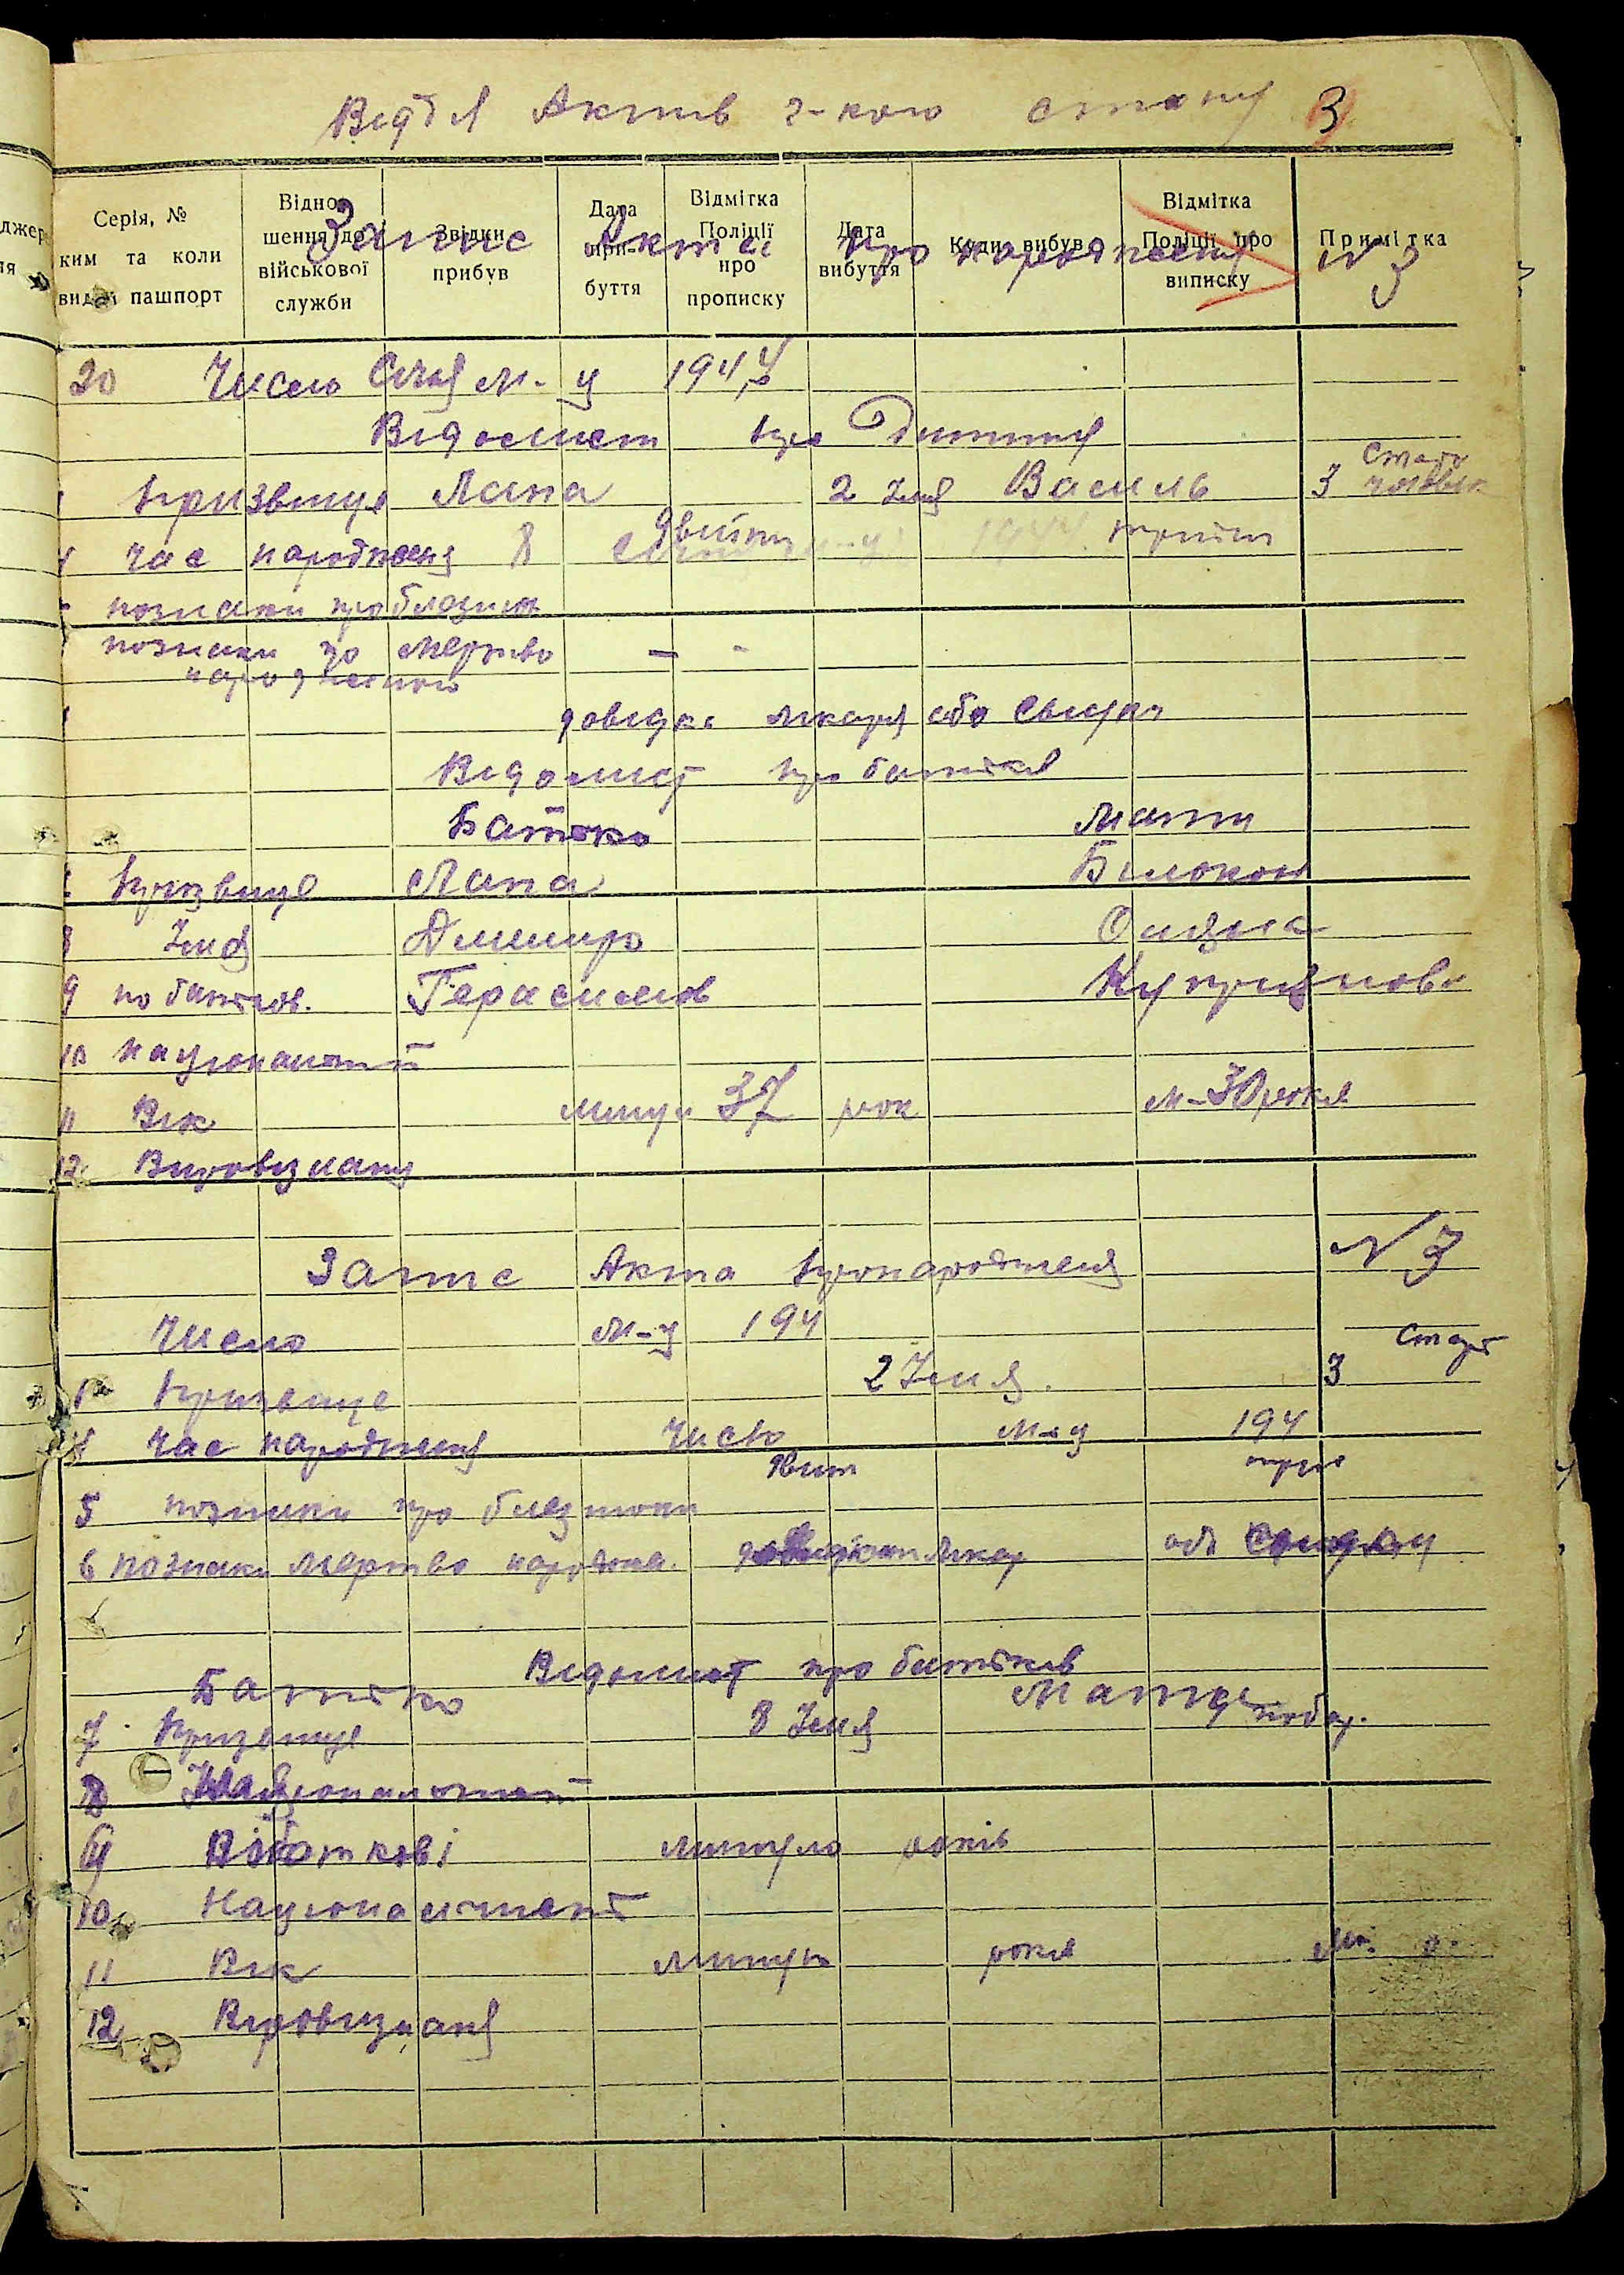 Відділ Актів г-кого стану 3
Серія, № ким та коли видан пашпорт
Відношення до військової служби
Звідки прибув
Дата прибуття
Відмітка Поліції про прописку
Дата вибуття
Коди вибув
Відмітка Поліції про виписку
Примітка
Запис Акта про народження N 3
20 Число Січня м-ця 1944 р
Відомист про Дитину
Призвище Лапа 2 Імя Василь 3 Стать чоловік
4 час народження 8
двійни трийн
познаки про близнюк
познаки по мертво народженого — -
довідка лікаря або
Відомист про батьків
Батько Мати
Призвище Лапа Білоконь
8 Імя Дмитро
9 по батьков. Герасимов Купріянова
10 Національність
11 Вік минул 37 рок м-30 років
12. Віровизнаня
Запис Акта про народженя N 3
Число м-ця 194
1 Призвище 2 Імя. 3 Стать
4 час народженя Число м-ця 194
двійн трин
5 познаки про близнюки
6 познаки мертво народже. лікар або
Відомист про батьків
Батько Мати
7 Призвище 8 Імя побат.
минуло років
10 Національність
11 Вік минуло років
12 Віровизнаня